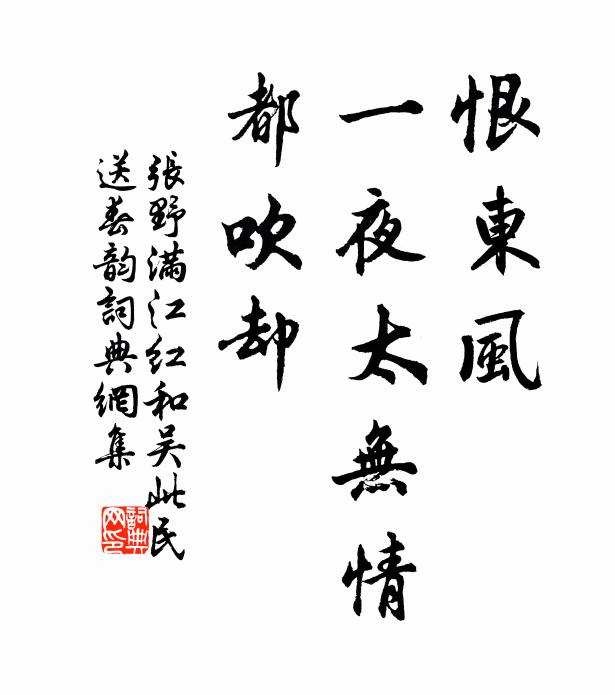 恨東風
一夜太無情
都吹却
張野滿江紅和吳此民
送春韵詞典網集
詞典
网印